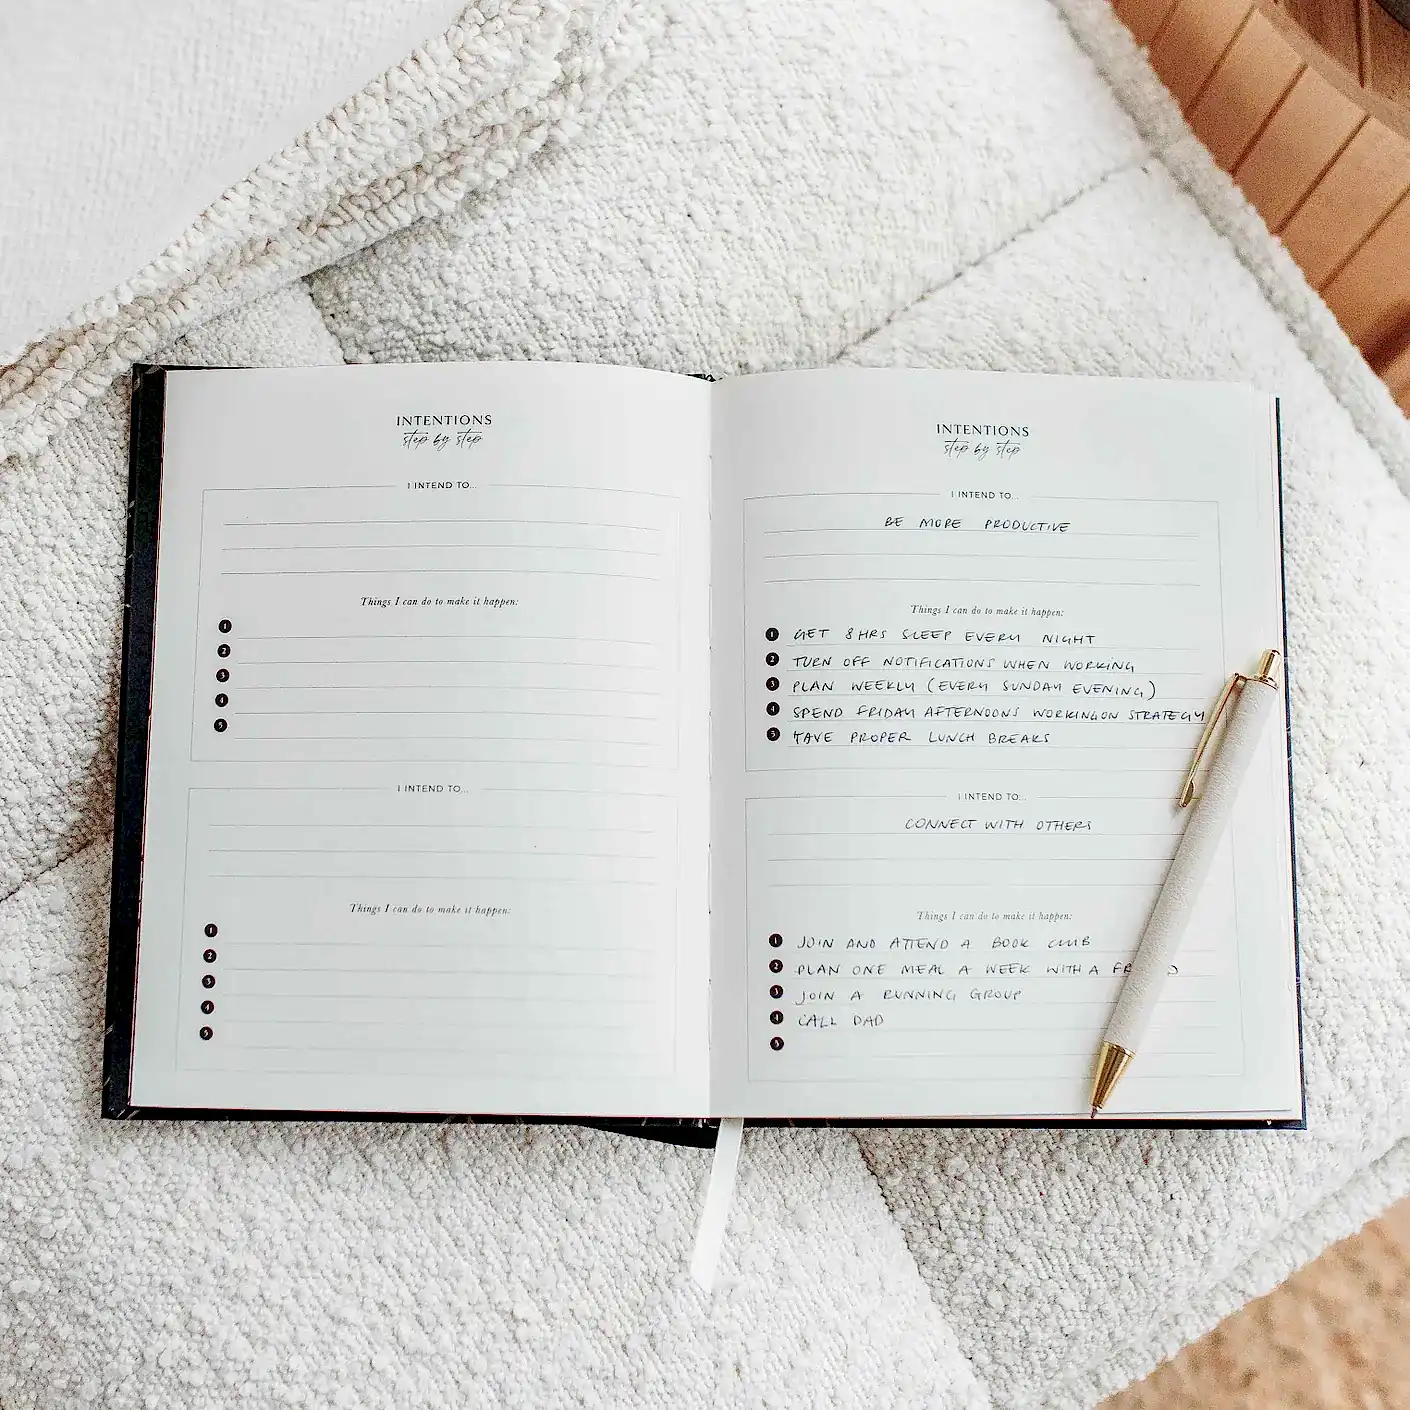 INTENTIONS
step by step
I INTEND TO...
Things I can do to make it happen:
1
2
3
4
5
I INTEND TO...
Things I can do to make it happen:
1
2
3
4
5
INTENTIONS
step by step
I INTEND TO...
BE MORE PRODUCTIVE
Things I can do to make it happen:
1 GET 8 HRS SLEEP EVERY NIGHT
2 TURN OFF NOTIFICATIONS WHEN WORKING
3 PLAN WEEKLY (EVERY SUNDAY EVENING)
4 SPEND FRIDAY AFTERNOONS WORKING ON STRATEGY
5 TAKE PROPER LUNCH BREAKS
I INTEND TO...
CONNECT WITH OTHERS
Things I can do to make it happen:
1 JOIN AND ATTEND A BOOK CLUB
2 PLAN ONE MEAL A WEEK WITH A
3 JOIN A RUNNING GROUP
4 CALL DAD
5